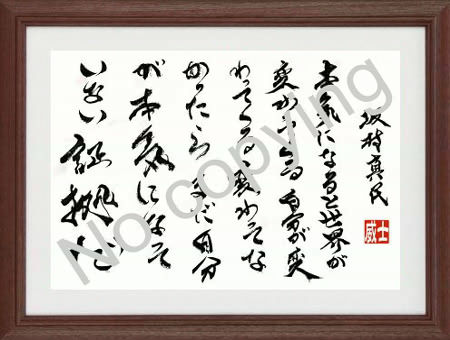 坂村真民
本気になると世界が
変わってくる自分が変
わってくる変わってな
かったらまだ自分
が本気になって
いない証拠だ
威士
No copying